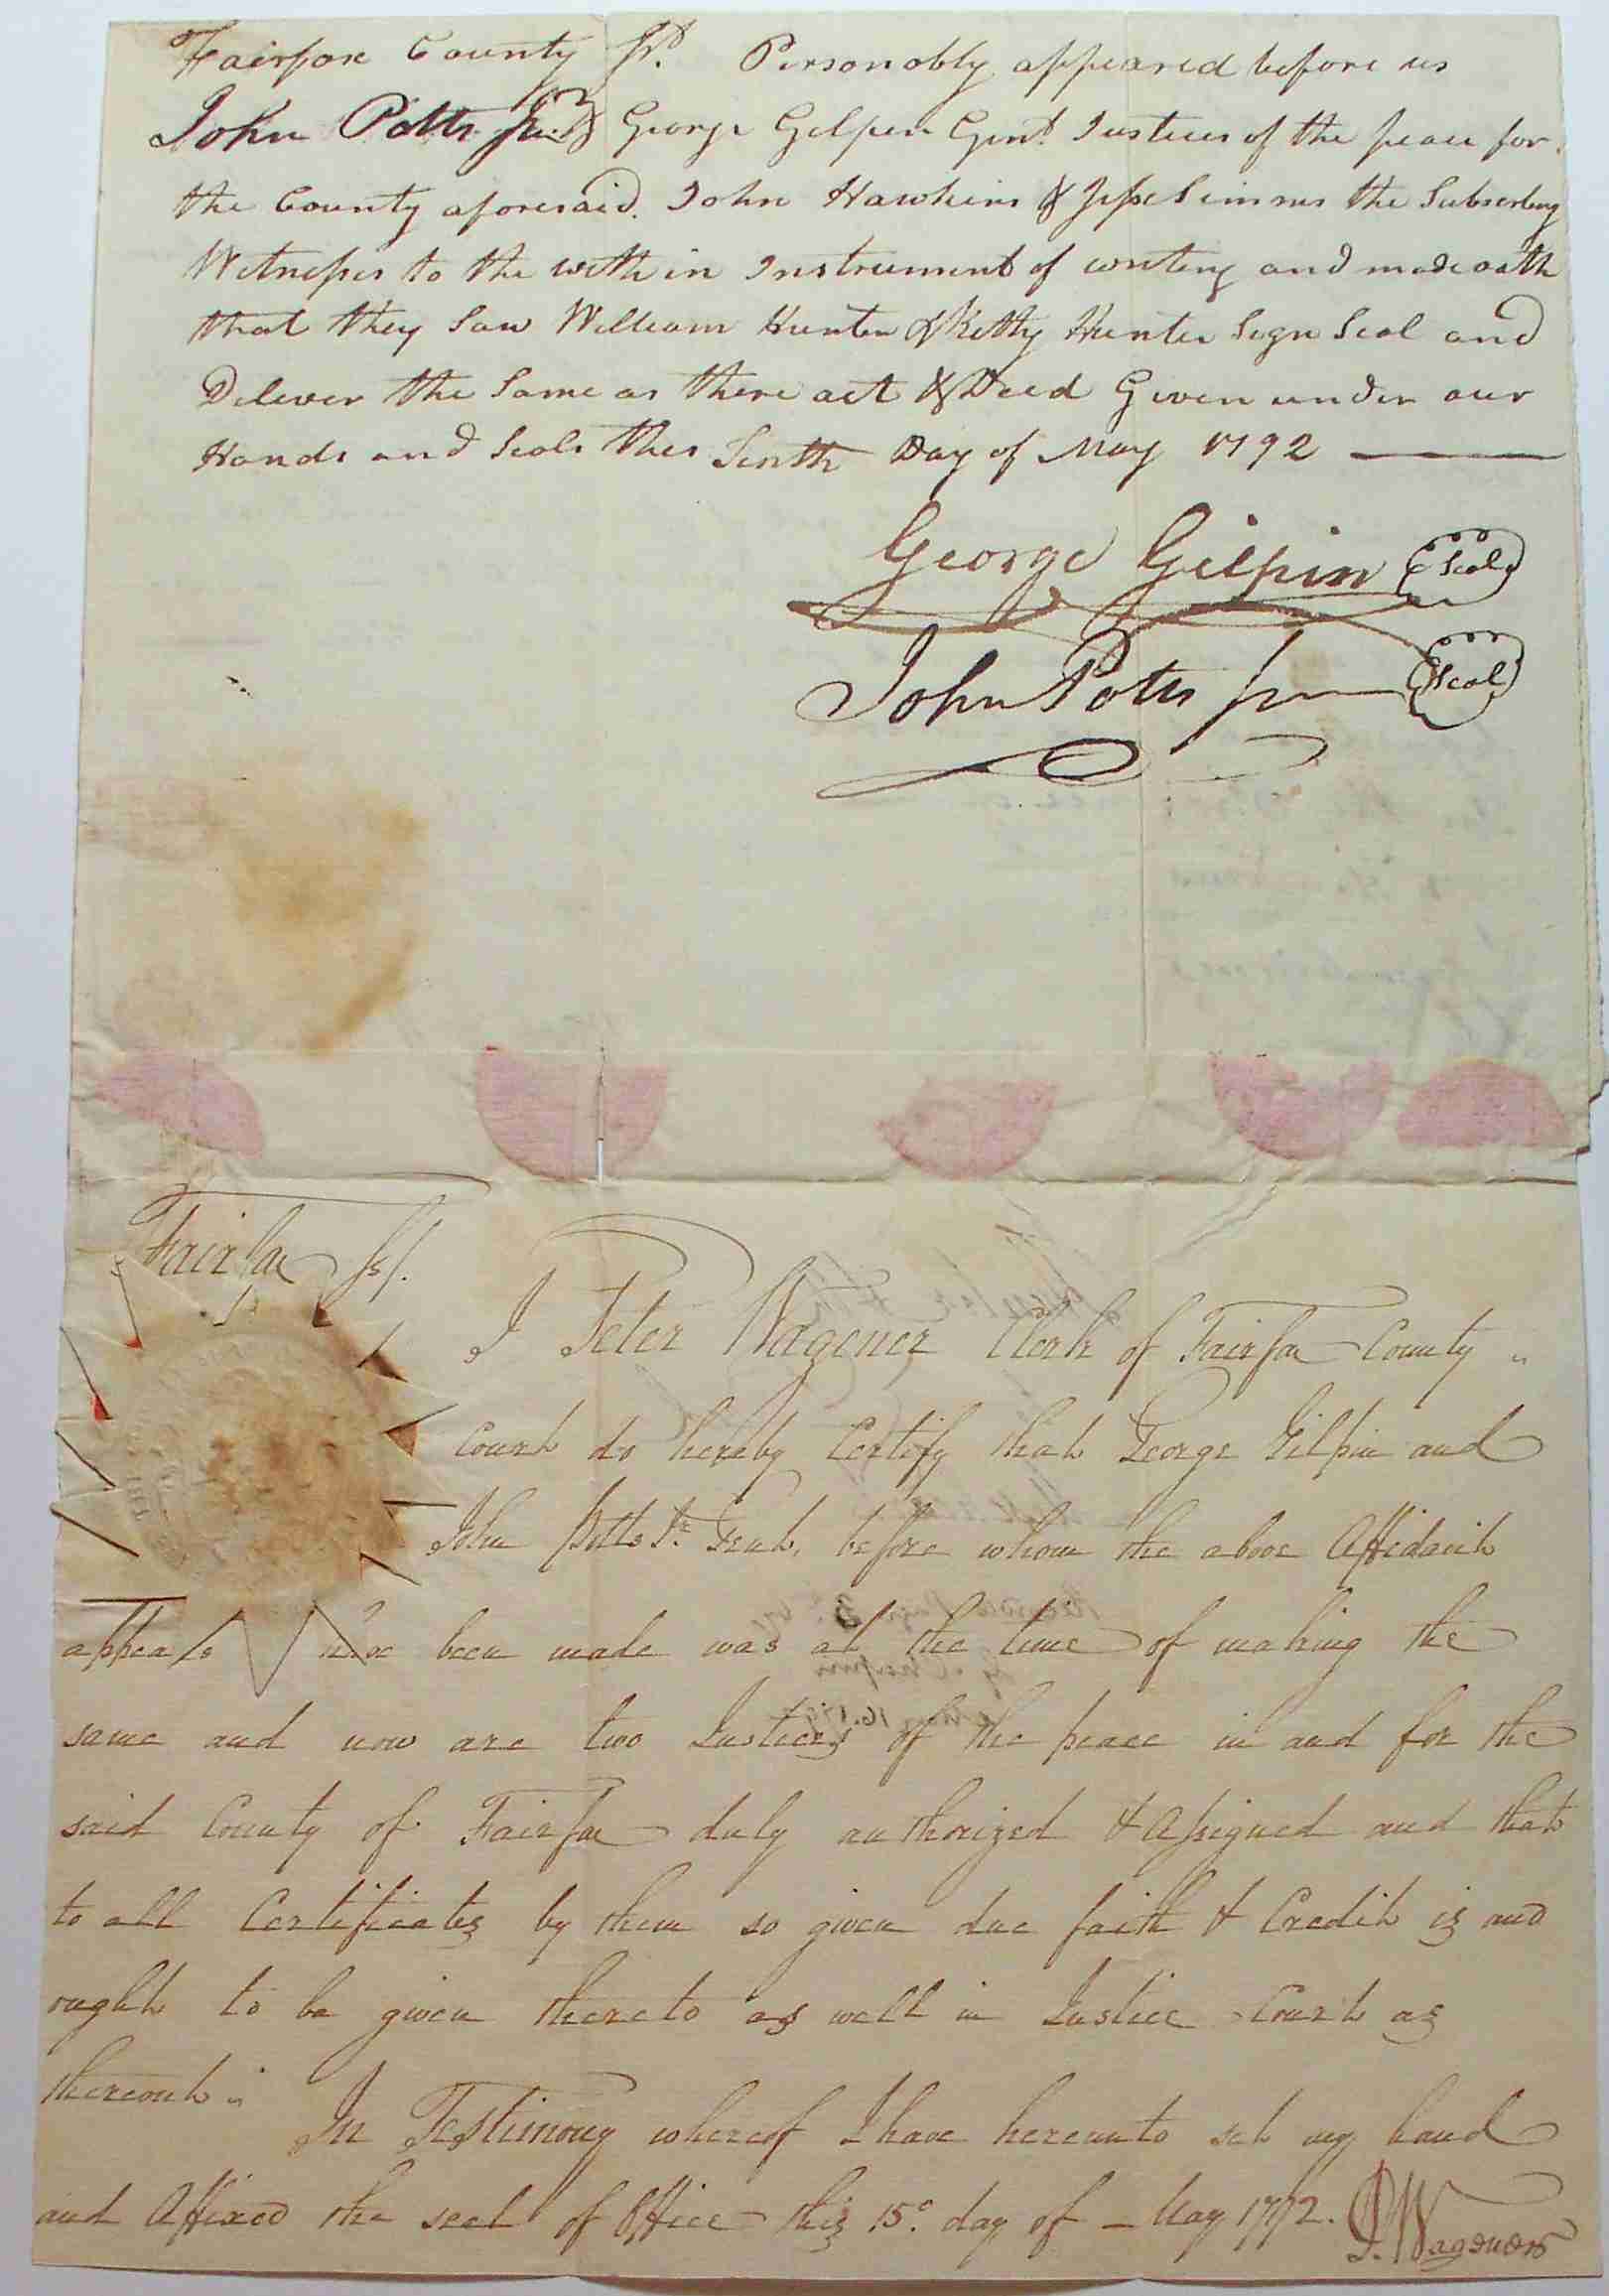 Fairfax County Ss. Personobly appeared before us
John Potts Jun.r & George Gilpin Gent. Justices of the peace for
the County aforesaid. John Hawkins & Jesse Simms the Subscribing
Witnesses to the with in Instrument of writing and made oath
that they Saw William Hunter & Kitty Hunter Sign Seal and
Deliver the Same as there act & Deed Given under our
Hands and Seals this Tenth Day of May 1792
George Gilpin Seal
John Potts Jr Seal
Fairfax Ss.
I Peter Wagener Clerk of Fairfax County
Court do hereby Certify that George Gilpin and
John Potts Jr. Gent. before whom the above Affidavit
appears have been made was at the time of making the
same and now are two Justices of the peace in and for the
said County of Fairfax duly authorized & Assigned and that
to all Certificates by them so given due faith & Credit is and
ought to be given thereto as well in Justice Court as
thereout
In Testimony whereof I have hereunto set my hand
and Affixed the seal of Office this 15th. day of May 1792. P. Wagener